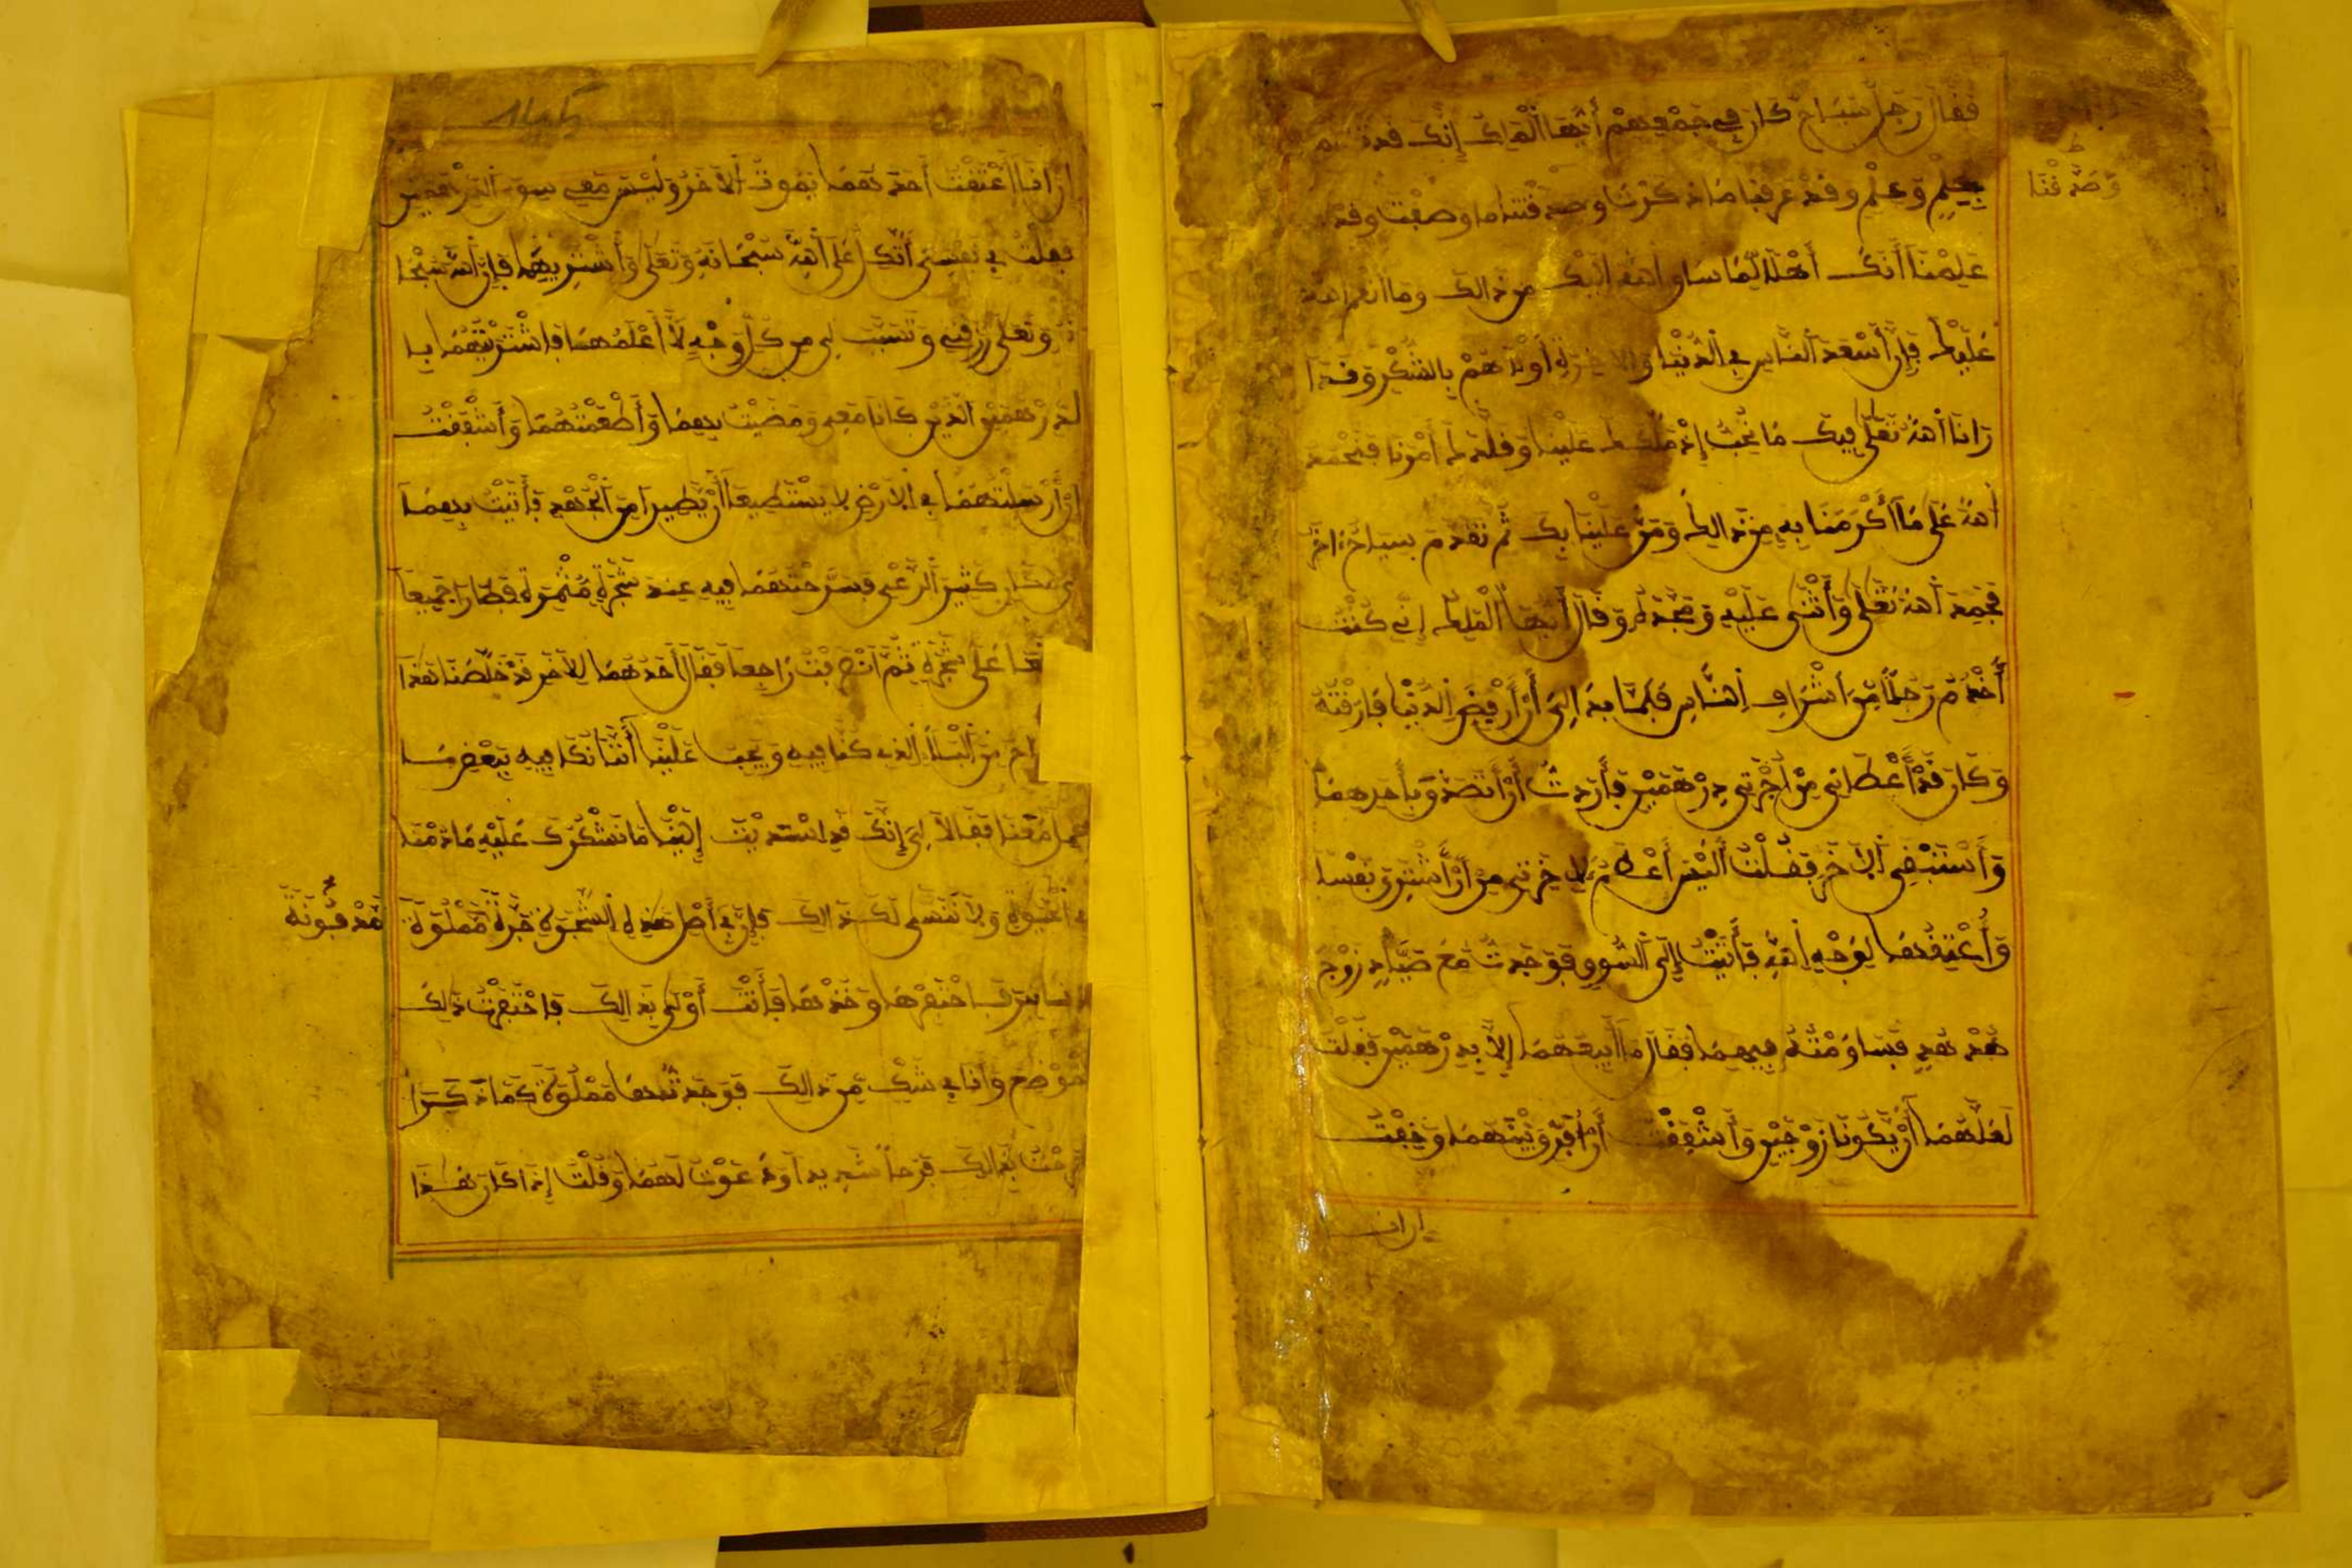 فقال رجل سياح كان في جمعهم أيها الملك إنك قد
وصدقنا
بحلم وعلم وقد عرفنا ما ذكرت وصدقنا ما وصفت وقد
علمنا أنك أهلا لما ساق الله إليك من ذالك وما أنعم الله
عليك فإن أسعد الناس في الدنيا والآخرة أولاهم بالشكر وقد أ
رانا الله تعلى فيك ما نحب إذ ملكك علينا وقلدك أمرنا فنحمد
الله على ما أكرمنا به من ذالك ومن علينا بك ثم تقدم سياح آخر
فحمد الله تعلى وأثنى عليه ومجده وقال أيها الملك إني كنت
أخدم رجلا من أشراف الناس فلما بدا لي أن أرفض الدنيا فارقته
وكان قد أعطاني من أجرتي درهمين فأردت أن أتصدق بأحدهما
وأستنبقي الآخر فقلت أليس أعظم لاخرتي من أن أشتري نفسا
وأعتقها لوجه الله فأتيت إلى السوق فوجدت مع صياد زوج
هدهد فساومته فيهما فقال ما أبيعهما إلا بدرهمين فقلت
لعلهما أن يكونا زوجين وأشفقت أن أفرق بينهما وخفت
إن أنا
إن أنا أعتقت أحدهما يموت الآخر وليس معي سوى الدرهمين
فقلت في نفسي أتكل على الله سبحانه وتعلى وأشتريهما فإن الله سبحا
نه وتعلى رزقني وتسبب لي من كل وجه لا أعلمه فاشتريتهما با
لدرهمين الذين كانا معي ومضيت بهما وأطعمتهما وأشفقت
إن أرسلتهما في الأرض لا يستطيعا أن يطيرا من الجهد فأتيت بهما
مكان كثير الرعي فسرحتهما فيه عند شجرة مثمرة فطارا جميعا
على شجرة ثم انصرفت راجعا فقال أحدهما للآخر قد خلصنا هذا
من البلاء الذي كنا فيه ويجب علينا أننا نكافيه ببعض ما
معنا فقالا لي إنك قد استديت إلينا ما نشكرك عليه ما دمنا
ولا ننسى لك ذالك فإن في أصل هذه الشجرة جرة مملوة
مدفونة
فاحتفرها وخذها فأنت أولى بذالك فاحتفرت ذلك
الموضع وأنا في شك من ذالك فوجدتها مملوة كما ذكرا
ففرحت بذالك فرحا شديدا ودعوت لهما وقلت إذا كان هذا